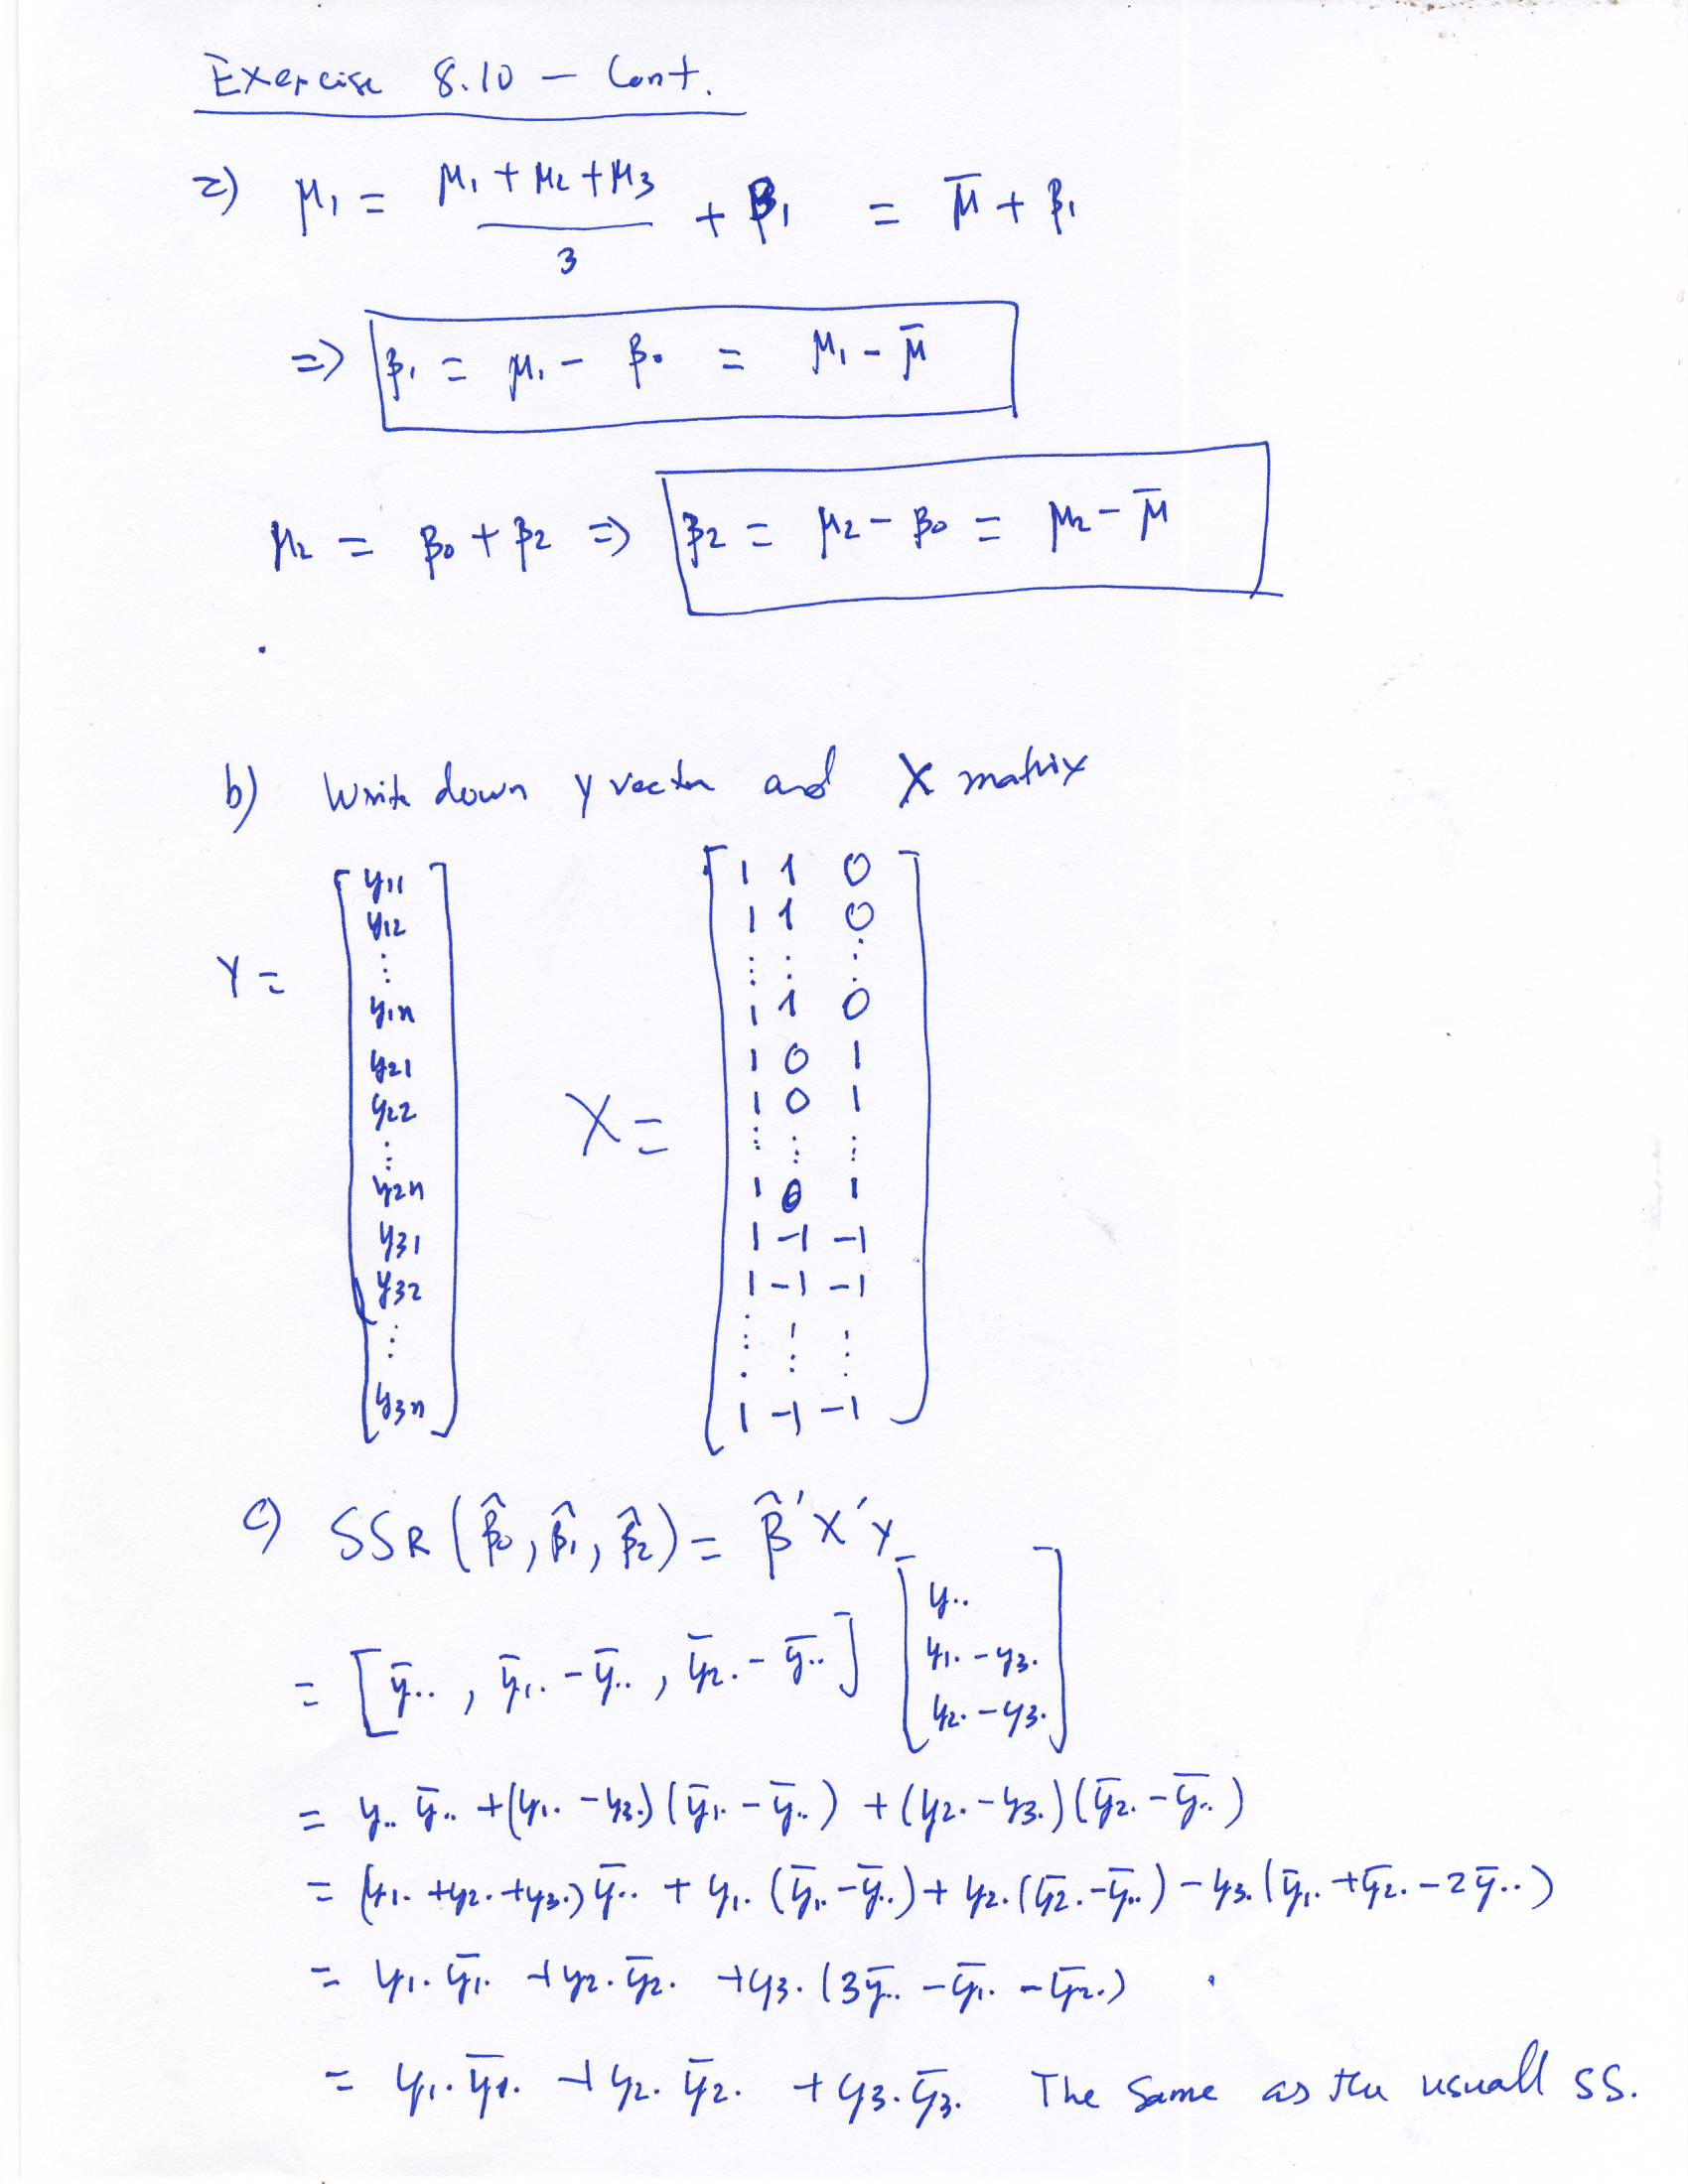 Exercise 8.10 – Cont.
2) μ₁ = (μ₁ + μ₂ + μ₃)/3 + β₁ = μ̄ + β₁
⇒ β₁ = μ₁ – β₀ = μ₁ – μ̄
μ₂ = β₀ + β₂ ⇒ β₂ = μ₂ – β₀ = μ₂ – μ̄
b) Write down y vector and X matrix
Y = [y11 y12 ⋮ y1n y21 y22 ⋮ y2n y31 y32 ⋮ y3n]
X = [
1 1 0
1 1 0
⋮ ⋮ ⋮
1 1 0
1 0 1
1 0 1
⋮ ⋮ ⋮
1 0 1
1 -1 -1
1 -1 -1
⋮ ⋮ ⋮
1 -1 -1
]
c) SSR(β̂₀, β̂₁, β̂₂) = β̂'X'Y
= [ȳ.., ȳ₁. – ȳ.., ȳ₂. – ȳ..] [y.. ; y₁. – y₃. ; y₂. – y₃.]
= y.. ȳ.. + (y₁. – y₃.)(ȳ₁. – ȳ..) + (y₂. – y₃.)(ȳ₂. – ȳ..)
= (y₁. + y₂. + y₃.) ȳ.. + y₁.(ȳ₁. – ȳ..) + y₂.(ȳ₂. – ȳ..) – y₃.(ȳ₁. + ȳ₂. – 2ȳ..)
= y₁. ȳ₁. + y₂. ȳ₂. + y₃.(3ȳ.. – ȳ₁. – ȳ₂.)
= y₁. ȳ₁. + y₂. ȳ₂. + y₃. ȳ₃. The Same as the usuall SS.